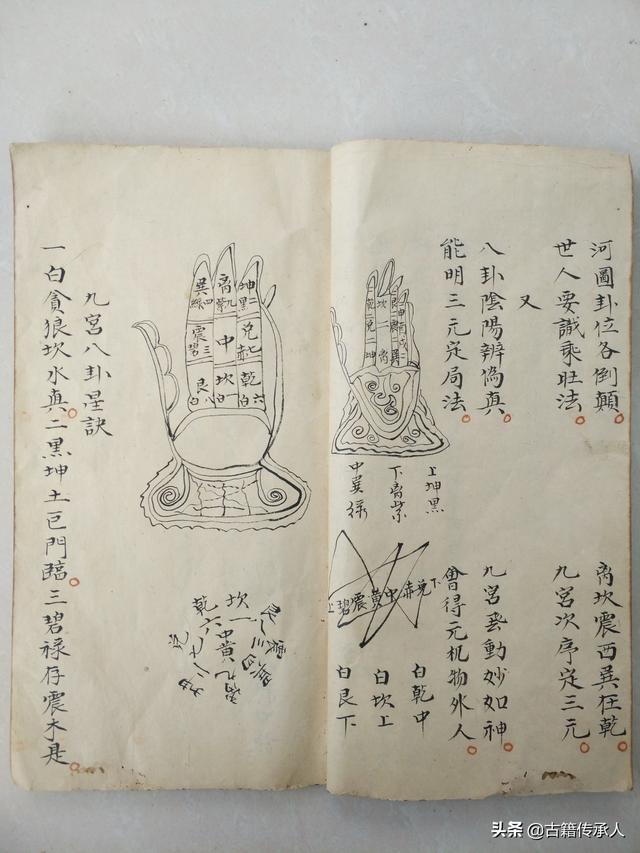 河圖卦位各倒顛
离坎震西巽在乾
世人要識乘旺法
九宮次序定三元
又
八卦陰陽辨偽真
九宮飛動妙如神
能明三元定局法
會得元机物外人
上坤黑
下离紫
中巽綠
上碧震黃中赤兌下
白乾中
白坎上
白艮下
巽四綠
离九紫
坤二黑
震三碧
中
兌七赤
艮八白
坎一白
乾六白
九宮八卦星訣
一白貪狼坎水真二黑坤土巨門臨三碧祿存震木是
头条 @古籍传承人